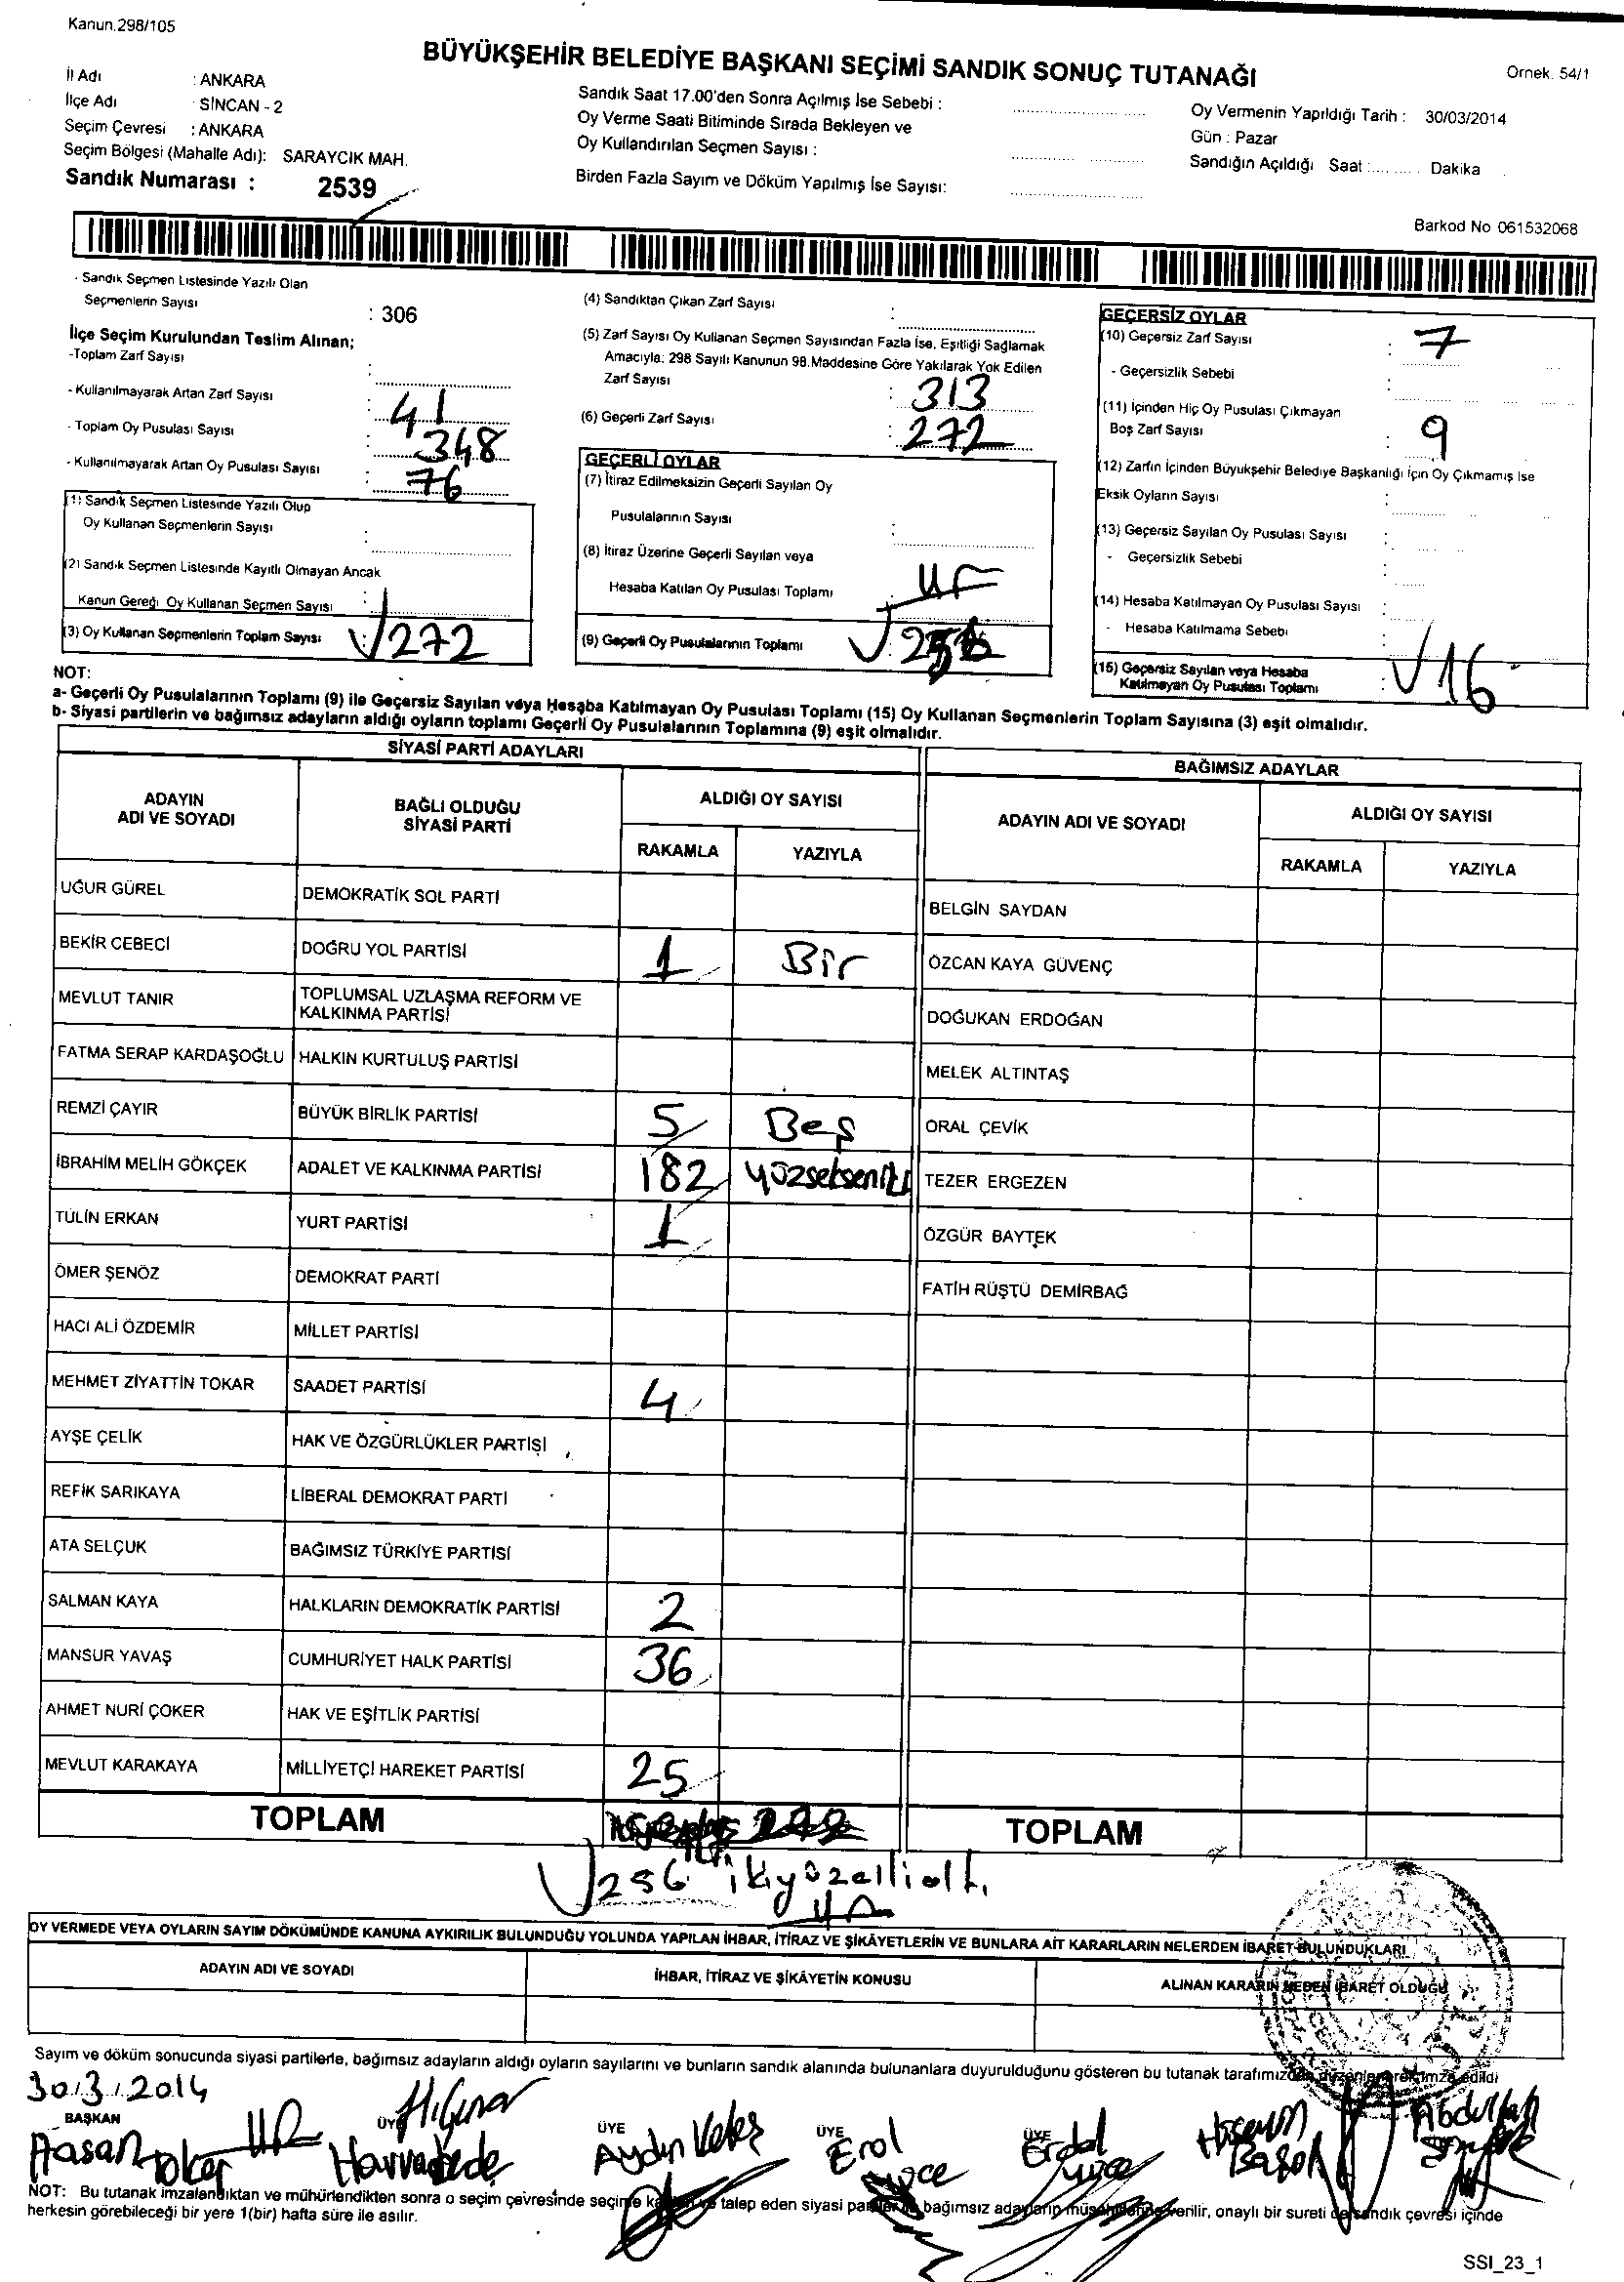 Kanun.298/105
BÜYÜKŞEHİR BELEDİYE BAŞKANI SEÇİMİ SANDIK SONUÇ TUTANAĞI
Örnek. 54/1
İl Adı : ANKARA
İlçe Adı SİNCAN - 2
Seçim Çevresi : ANKARA
Seçim Bölgesi (Mahalle Adı): SARAYCIK MAH.
Sandık Numarası : 2539
Sandık Saat 17.00'den Sonra Açılmış İse Sebebi :
Oy Verme Saati Bitiminde Sırada Bekleyen ve
Oy Kullandırılan Seçmen Sayısı :
Birden Fazla Sayım ve Döküm Yapılmış İse Sayısı:
Oy Vermenin Yapıldığı Tarih : 30/03/2014
Gün : Pazar
Sandığın Açıldığı Saat :.......... Dakika
Barkod No 061532068
- Sandık Seçmen Listesinde Yazılı Olan
Seçmenlerin Sayısı : 306
İlçe Seçim Kurulundan Teslim Alınan;
-Toplam Zarf Sayısı :
- Kullanılmayarak Artan Zarf Sayısı : 41
- Toplam Oy Pusulası Sayısı : 348
- Kullanılmayarak Artan Oy Pusulası Sayısı : 76
(1) Sandık Seçmen Listesinde Yazılı Olup
Oy Kullanan Seçmenlerin Sayısı :
(2) Sandık Seçmen Listesinde Kayıtlı Olmayan Ancak
Kanun Gereği Oy Kullanan Seçmen Sayısı :
(3) Oy Kullanan Seçmenlerin Toplam Sayısı : 272
(4) Sandıktan Çıkan Zarf Sayısı :
(5) Zarf Sayısı Oy Kullanan Seçmen Sayısından Fazla İse, Eşitliği Sağlamak
Amacıyla; 298 Sayılı Kanunun 98.Maddesine Göre Yakılarak Yok Edilen
Zarf Sayısı : 313
(6) Geçerli Zarf Sayısı : 272
GEÇERLİ OYLAR
(7) İtiraz Edilmeksizin Geçerli Sayılan Oy
Pusulalarının Sayısı :
(8) İtiraz Üzerine Geçerli Sayılan veya
Hesaba Katılan Oy Pusulası Toplamı
(9) Geçerli Oy Pusulalarının Toplamı
GEÇERSİZ OYLAR
(10) Geçersiz Zarf Sayısı : 7
- Geçersizlik Sebebi :
(11) İçinden Hiç Oy Pusulası Çıkmayan
Boş Zarf Sayısı : 9
(12) Zarfın İçinden Büyükşehir Belediye Başkanlığı İçin Oy Çıkmamış İse
Eksik Oyların Sayısı :
(13) Geçersiz Sayılan Oy Pusulası Sayısı :
- Geçersizlik Sebebi :
(14) Hesaba Katılmayan Oy Pusulası Sayısı :
- Hesaba Katılmama Sebebi :
(15) Geçersiz Sayılan veya Hesaba
Katılmayan Oy Pusulası Toplamı : 16
NOT:
a- Geçerli Oy Pusulalarının Toplamı (9) ile Geçersiz Sayılan veya Hesaba Katılmayan Oy Pusulası Toplamı (15) Oy Kullanan Seçmenlerin Toplam Sayısına (3) eşit olmalıdır.
b- Siyasi partilerin ve bağımsız adayların aldığı oyların toplamı Geçerli Oy Pusulalarının Toplamına (9) eşit olmalıdır.
SİYASİ PARTİ ADAYLARI
BAĞIMSIZ ADAYLAR
ADAYIN ADI VE SOYADI
BAĞLI OLDUĞU SİYASİ PARTİ
ALDIĞI OY SAYISI
RAKAMLA YAZIYLA
ADAYIN ADI VE SOYADI
ALDIĞI OY SAYISI
RAKAMLA YAZIYLA
UĞUR GÜREL DEMOKRATİK SOL PARTİ BELGİN SAYDAN
BEKİR CEBECİ DOĞRU YOL PARTİSİ 1 Bir ÖZCAN KAYA GÜVENÇ
MEVLUT TANIR TOPLUMSAL UZLAŞMA REFORM VE KALKINMA PARTİSİ DOĞUKAN ERDOĞAN
FATMA SERAP KARDAŞOĞLU HALKIN KURTULUŞ PARTİSİ MELEK ALTINTAŞ
REMZİ ÇAYIR BÜYÜK BİRLİK PARTİSİ 5 Beş ORAL ÇEVİK
İBRAHİM MELİH GÖKÇEK ADALET VE KALKINMA PARTİSİ 182 yüzsekseniki TEZER ERGEZEN
TÜLİN ERKAN YURT PARTİSİ 1 ÖZGÜR BAYTEK
ÖMER ŞENÖZ DEMOKRAT PARTİ FATİH RÜŞTÜ DEMİRBAĞ
HACI ALİ ÖZDEMİR MİLLET PARTİSİ
MEHMET ZİYATTİN TOKAR SAADET PARTİSİ 4
AYŞE ÇELİK HAK VE ÖZGÜRLÜKLER PARTİSİ
REFİK SARIKAYA LİBERAL DEMOKRAT PARTİ
ATA SELÇUK BAĞIMSIZ TÜRKİYE PARTİSİ
SALMAN KAYA HALKLARIN DEMOKRATİK PARTİSİ 2
MANSUR YAVAŞ CUMHURİYET HALK PARTİSİ 36
AHMET NURİ ÇOKER HAK VE EŞİTLİK PARTİSİ
MEVLUT KARAKAYA MİLLİYETÇİ HAREKET PARTİSİ 25
TOPLAM TOPLAM
256 ikiyüzellialtı
OY VERMEDE VEYA OYLARIN SAYIM DÖKÜMÜNDE KANUNA AYKIRILIK BULUNDUĞU YOLUNDA YAPILAN İHBAR, İTİRAZ VE ŞİKÂYETLERİN VE BUNLARA AİT KARARLARIN NELERDEN İBARET BULUNDUKLARI
ADAYIN ADI VE SOYADI İHBAR, İTİRAZ VE ŞİKÂYETİN KONUSU ALINAN KARARIN NEDEN İBARET OLDUĞU
Sayım ve döküm sonucunda siyasi partilerle, bağımsız adayların aldığı oyların sayılarını ve bunların sandık alanında bulunanlara duyurulduğunu gösteren bu tutanak tarafımızdan düzenlenerek imza edildi
30.3.2014
BAŞKAN ÜYE ÜYE ÜYE ÜYE
Hasan Toker Aydın Keleş Erol Yüce Erdal Yüce Hüseyin Abdullah
NOT: Bu tutanak imzalandıktan ve mühürlendikten sonra o seçim çevresinde seçime katılan ve talep eden siyasi partiler ile bağımsız adayların müşahitlerine verilir, onaylı bir sureti de sandık çevresi içinde
herkesin görebileceği bir yere 1(bir) hafta süre ile asılır.
SSI_23_1